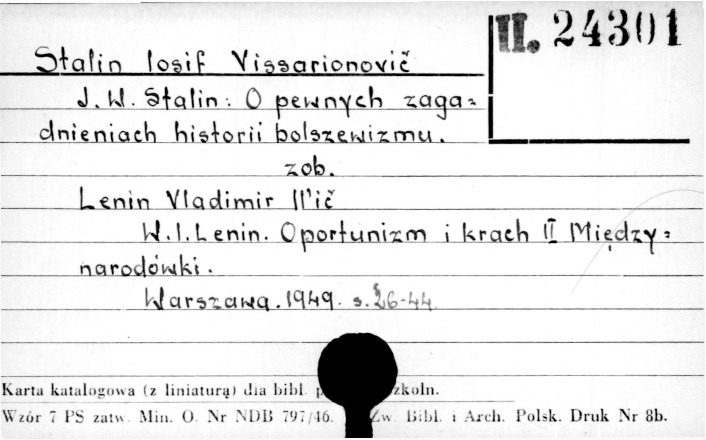 II. 24301
Stalin Iosif Vissarionovič
J. W. Stalin: O pewnych zaga=
dnieniach historii bolszewizmu.
zob.
Lenin Vladimir Il'ič
W. I. Lenin. Oportunizm i krach II Między=
narodówki.
Warszawa. 1949. s. 26-44
Karta katalogowa (z liniaturą) dla bibl. zkoln.
Wzór 7 PS zatw. Min. O. Nr NDB 797/46. Zw. Bibl. i Arch. Polsk. Druk Nr 8b.